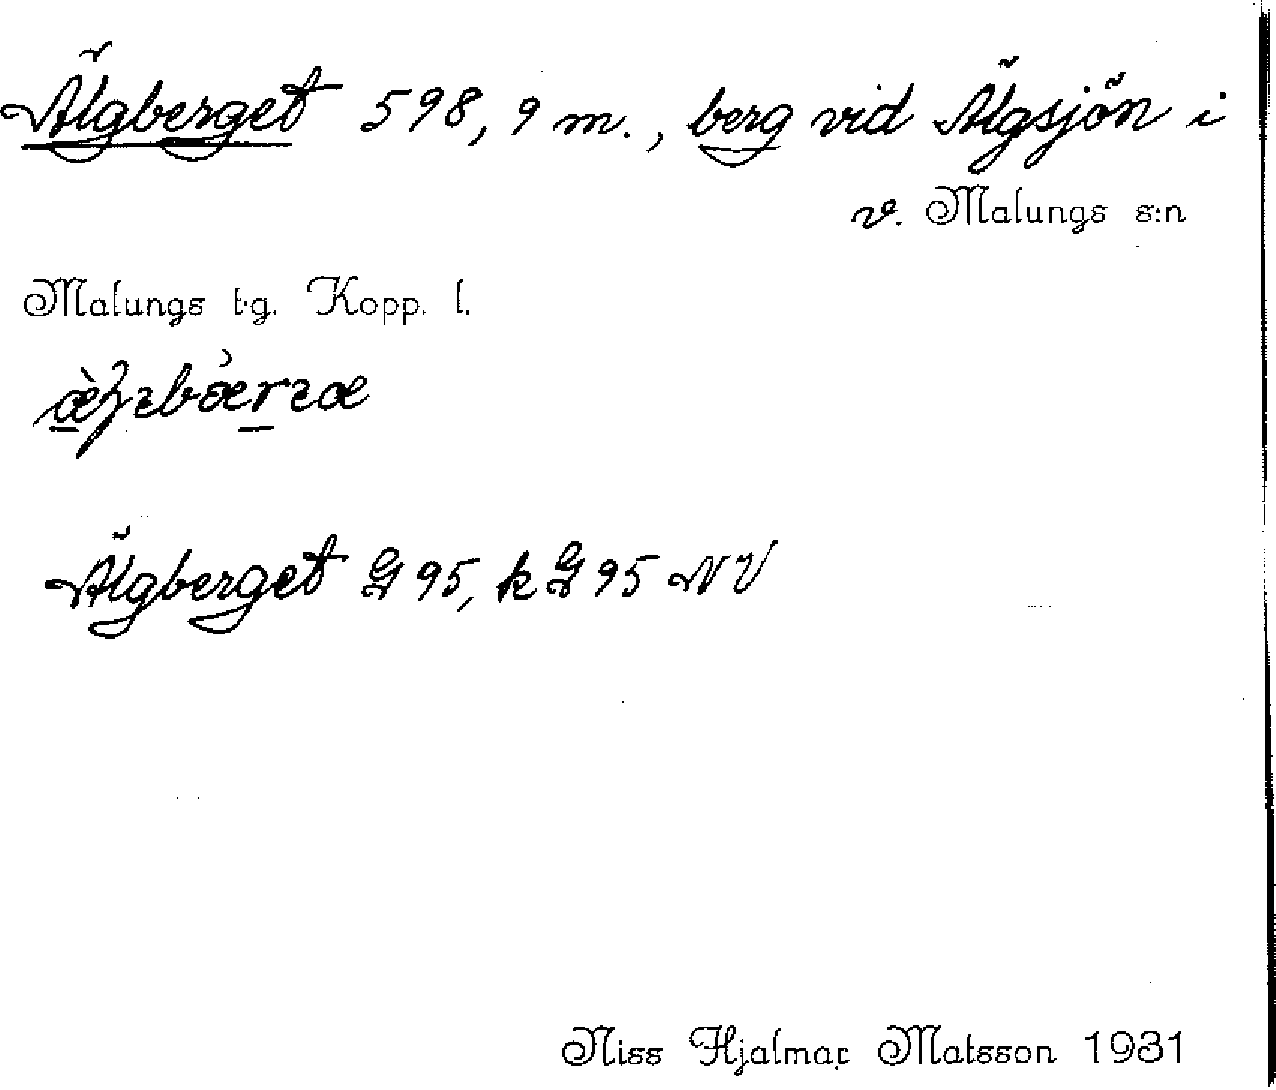 Älgberget 598,9 m., berg vid Älgsjön i
v. Malungs s:n
Malungs t.g. Kopp. l.
Älgberget G 95, k G 95 NV
Niss Hjalmar Matsson 1931